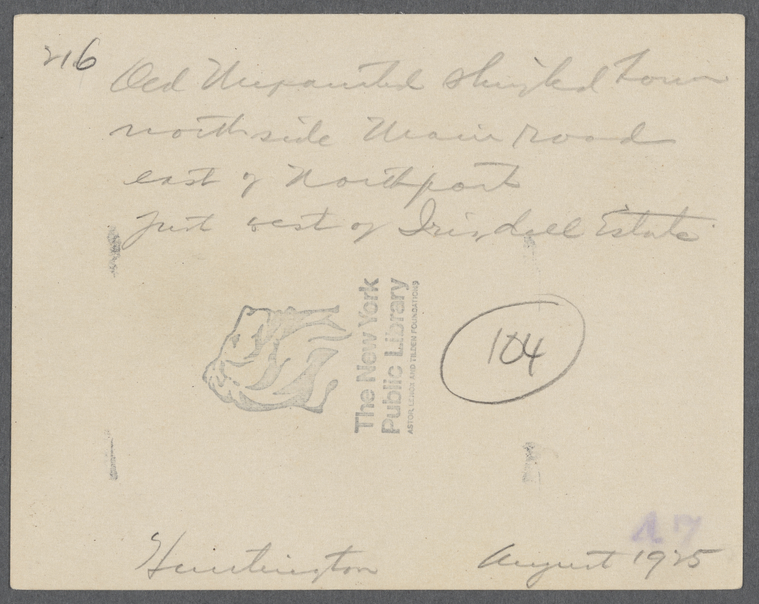 216 Old Unpainted Shingled house
north side Main Road
east of Northport
Just west of Irisdell Estate
The New York
Public Library
ASTOR, LENOX AND TILDEN FOUNDATIONS
104
A7
Huntington August 1925